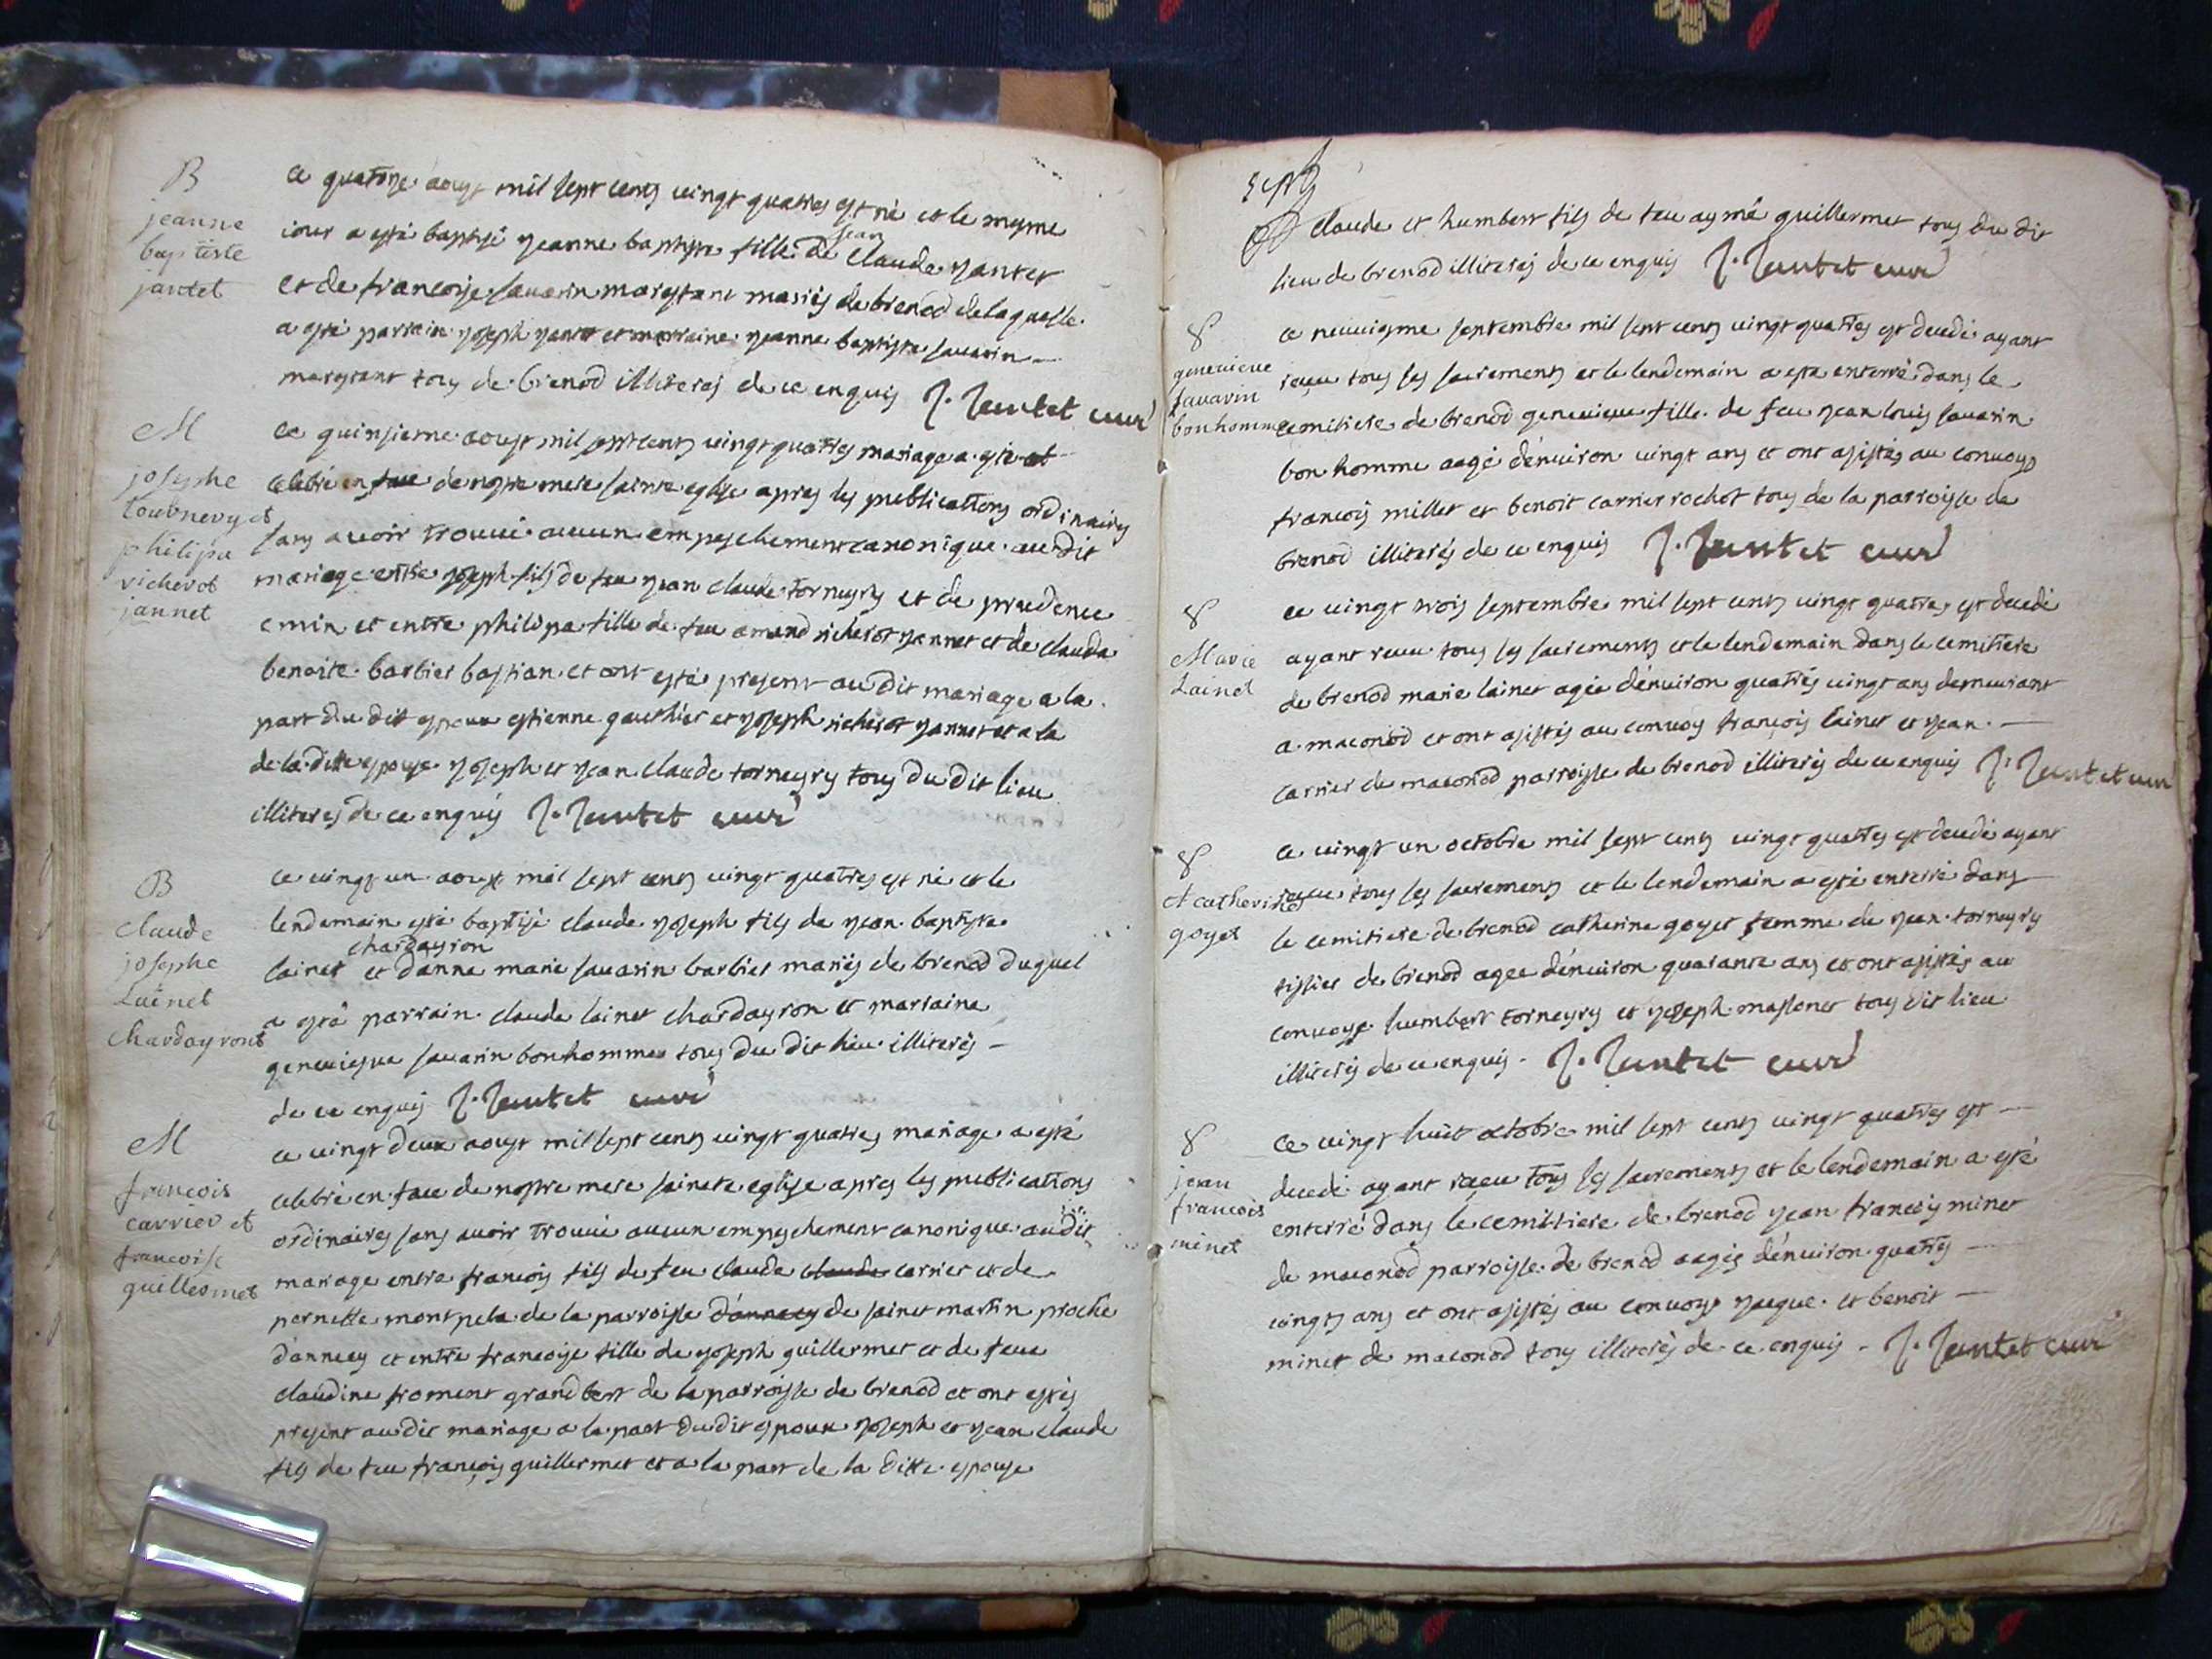 B
jeanne
baptiste
jantet
ce quatorze aoust mil sept cents vingt quatres est né et le mesme
iour a esté baptisé jeanne baptiste fille de jean claude jantet
et de francoise sauarin marestant mariés de brenod delaquelle
a esté parrain joseph jantet et marraine jeanne baptiste sauarin
marestant tous de brenod illiterés de ce enquis J. Jantet curé
M
josephe
tournery et
philipa
richerot
jannet
ce quinsieme aoust mil sept cents vingt quatres mariage a esté et
celebré en face de nostre mere sainte eglise apres les publications ordinaires
sans auoir trouué aucun empeschement canonique audit
mariage entre joseph fils de feu jean claude torneyry et de prudence
emin et entre philipa fille de feu amand richerot jannet et de clauda
benoite barbier bastian et ont esté present audit mariage a la
part du dit espoux estienne gauthier et joseph richerot jannet et a la
de la ditte espouse joseph et jean claude torneyry tous du dit lieu
illiterés de ce enquis J. Jantet curé
B
claude
josephe
Lainet
chardayront
ce vingt un aoust mil sept cents vingt quatres est né et le
lendemain esté baptisé claude joseph fils de jean baptiste
lainet chardayron et d'anne marie sauarin barbier mariés de brenod duquel
a esté parrain claude lainet chardayron et marraine
geneuiesue sauarin bonhomme tous du dit lieu illiterés
de ce enquis J. Jantet curé
M
francois
carrier et
francoise
guillermet
ce vingt deux aoust mil sept cents vingt quatres mariage a esté
celebré en face de nostre mere saincte eglise apres les publications
ordinaires sans auoir trouué aucun empeschement canonique audit
mariage entre francois fils de feu claude claude carrier et de
pernette montpela de la parroisse d'annecy de sainct martin proche
d'annecy et entre francoise fille de joseph guillermet et de feue
claudine froment grandbert de la parroisse de brenod et ont estés
present audit mariage a la part du dit espoux joseph et jean claude
fils de feu françois guillermet et a la part de la ditte espouse
claude et humbert fils de feu aymé guillermet tous du dit
lieu de brenod illiterés de ce enquis J. Jantet curé
geneuieue
sauarin
bonhomme
ce neuuiesme septembre mil sept cents vingt quatres est decedé ayant
reçeu tous ses sacrements et le lendemain a esté enterré dans le
cemitiere de brenod geneuieue fille de feu jean louis sauarin
bon homme aagé d'enuiron vingt ans et ont assistés au conuoys
francois millet et benoit carrier rochot tous de la parroisse de
brenod illiterés de ce enquis J. Jantet curé
Marie
Lainet
ce vingt trois septembre mil sept cents vingt quatre est decedé
ayant receu tous ses sacrements et le lendemain dans le cemitiere
de brenod marie lainet agée d'enuiron quatres vingt ans demeurant
a maconod et ont assistés au conuoy françois lainet et jean
carrier de maconod parroisse de brenod illiterés de ce enquis J. Jantet curé
catherine
goyet
ce vingt un octobre mil sept cents vingt quatres est decedé ayant
receu tous ses sacrements et le lendemain a esté enterré dans
le cemitiere de brenod catherine goyet femme de jean torneyry
tissier de brenod agee d'enuiron quarante ans et ont assistés au
conuoye humbert torneyry et joseph massonet tous dit lieu
illiterés de ce enquis J. Jantet curé
jean
francois
minet
ce vingt huit octobre mil sept cents vingt quatres est
decedé ayant receu tous ses sacrements et le lendemain a esté
enterré dans le cemitiere de brenod jean francois minet
de maconod parroisse de brenod aagés d'enuiron quatres
vingts ans et ont assistés au conuoys jacque et benoit
minet de maconod tous illiterés de ce enquis J. Jantet curé